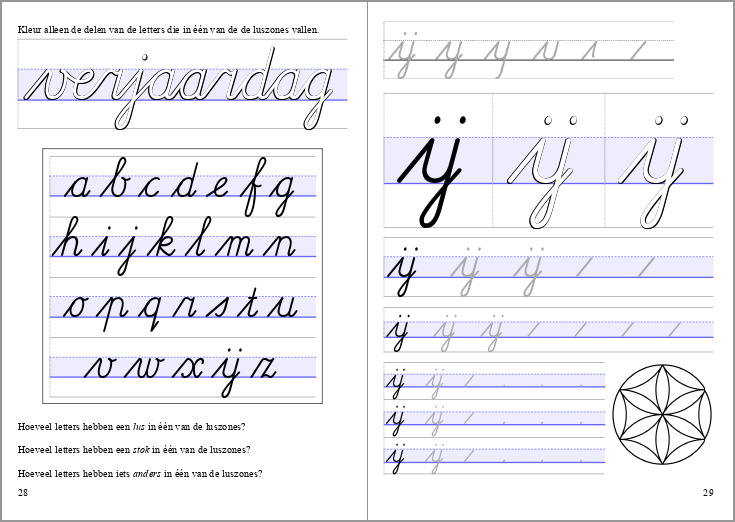 Kleur alleen de delen van de letters die in één van de de luszones vallen.
verjaardag
a b c d e f g
h i j k l m n
o p q r s t u
v w x ij z
Hoeveel letters hebben een lus in één van de luszones?
Hoeveel letters hebben een stok in één van de luszones?
Hoeveel letters hebben iets anders in één van de luszones?
28
ij ij
ij ij ij
ij ij ij
ij ij ij
ij ij
ij ij
ij ij
29